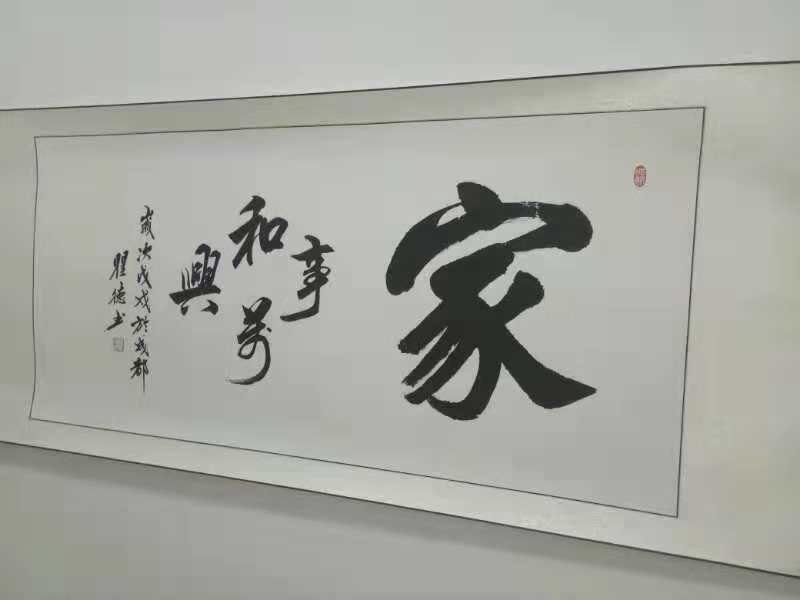 家
和萬
事
興
歲次戊戌於成都
瞿德书